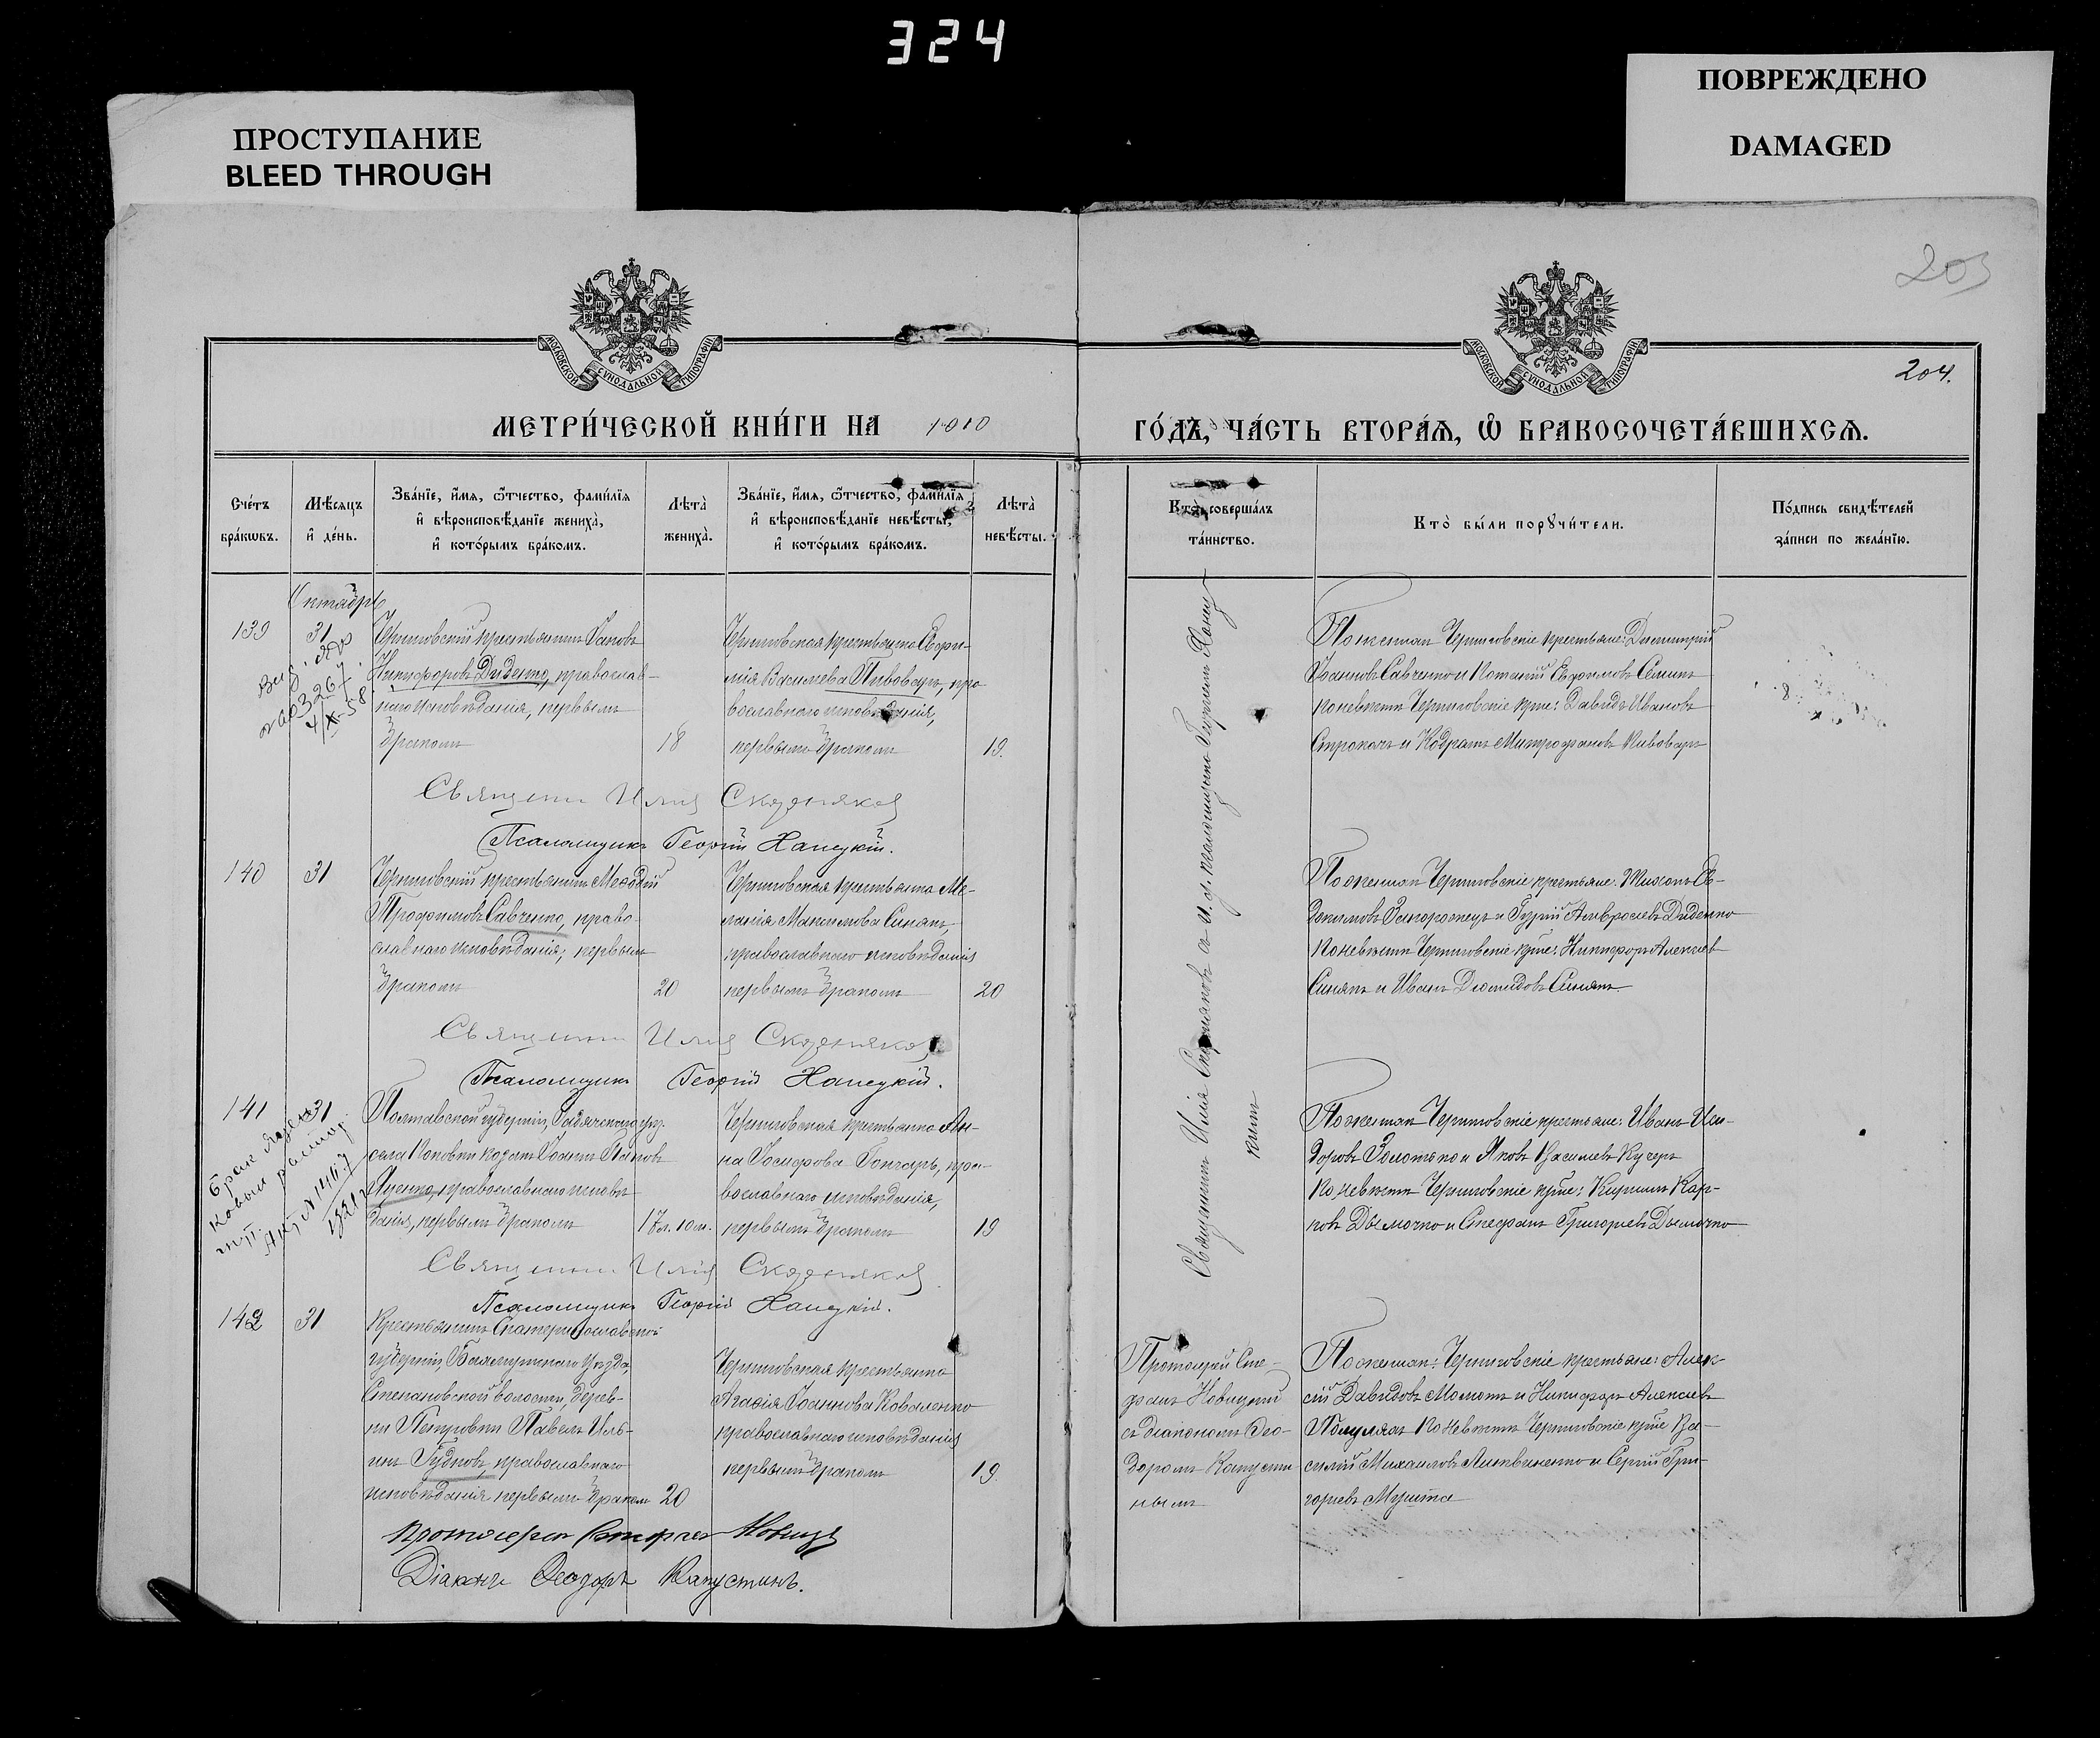 324
ПРОСТУПАНИЕ
BLEED THROUGH
ПОВРЕЖДЕНО
DAMAGED
203
204.
МОСКОВСКОЙ СѴНОДАЛЬНОЙ ТИПОГРАФІИ
МОСКОВСКОЙ СѴНОДАЛЬНОЙ ТИПОГРАФІИ
МЕТРИ́ЧЕСКОЙ КНИ́ГИ НА 1910
ГО́ДЪ, ЧА́СТЬ ВТОРА́Я, Ѡ҆ БРАКОСОЧЕТА́ВШИХСЯ.
Сче́тъ бра́кωвъ.
Мѣ́сяцъ и҆ де́нь.
Зва́нїе, и҆́мя, ѻ҆́тчество, фами́лїя
и҆ вѣроисповѣ́данїе жениха̀,
и҆ кото́рымъ бра́комъ.
Лѣта̀ жениха̀.
Зва́нїе, и҆́мя, ѻ҆́тчество, фами́лїя
и҆ вѣроисповѣ́данїе невѣ́сты,
и҆ кото́рымъ бра́комъ.
Лѣта̀ невѣ́сты.
Кто̀ соверша́лъ
та́инство.
Кто̀ бы́ли порꙋчи́тели.
По́дпись свидѣ́телей
за́писи по жела́нїю.
Октябрь
139
31
Черниговскій крестьянинъ Іаковъ
Никифоровъ Диденко, православ-
наго исповѣданія, первымъ
бракомъ
18
Черниговская крестьянка Евфи-
мія Васильева Пивоваръ, пра
вославнаго исповѣданія,
первымъ бракомъ
19.
4/XI-58
По женихѣ Черниговскіе крестьяне: Димитрій
Іоанновъ Савченко и Евфимовъ
По невѣстѣ Черниговскіе крне: Давидъ Ивановъ
и Кодратъ Митрофановъ Пивоваръ
Священн Илія Скоренякъ
Псаломщикъ Георгій Ханецкій.
Священникъ Илія с и. д. псаломщика Георгіемъ
140
31
Черниговскій крестьянинъ Меѳодій
Трофимовъ Савченко, право-
славнаго исповѣданія, первымъ
бракомъ
20
Черниговская крестьянка Ме-
ланія Максимова Синякъ,
православнаго исповѣданія
первымъ бракомъ
20
По женихѣ Черниговскіе крестьяне: Тихонъ Ев-
докимовъ Запорожецъ и Гурій Амвросіевъ Диденко
По невѣстѣ Черниговскіе крне: Никифоръ Алексѣевъ
Синякъ и Иванъ Синякъ
Священн Илія Скоренякъ
Псаломщикъ Георгій Ханецкій.
141
31
Полтавской губерніи, Гадячскаго уѣз.
села Поповки козакъ Іоаннъ
Яценко, православнаго исповѣ
данія, первымъ бракомъ
17л. 10м.
Черниговская крестьянка Ан-
на Іосифова Гончаръ, пра-
вославнаго исповѣданія,
первымъ бракомъ
19
Брак
По женихѣ Черниговскіе крестьяне: Иванъ Иси-
доровъ Золотько и Яковъ Васильевъ Кучеръ
По невѣстѣ Черниговскіе крне: Кириллъ Кар-
повъ Дымочко и Стефанъ Григорьевъ Дымочко
Священн Илія Скоренякъ
Псаломщикъ Георгій Ханецкій.
142
31
Крестьянинъ Екатеринославской
губерніи, Бахмутскаго уѣзда,
Степановской волости, дерев-
ни Петровки Павелъ Иль-
инъ Гудковъ, православнаго
исповѣданія первымъ бракомъ
20
Черниговская крестьянка
Агафія Іоаннова Коваленко
православнаго исповѣданія
первымъ бракомъ
19.
Протоіерей Сте-
фанъ Новицкій
съ діакономъ Ѳео-
доромъ Капусти
нымъ
По женихѣ: Черниговскіе крестьяне: Алек-
сій Давидовъ Момотъ и Никифоръ Алексѣевъ
По невѣстѣ Черниговскіе крне Ва-
силій Михаиловъ Литвиненко и Сергій Гри-
горьевъ Мушта
Протоіерей Стефанъ Новицкій
Діаконъ Ѳеодоръ Капустинъ.